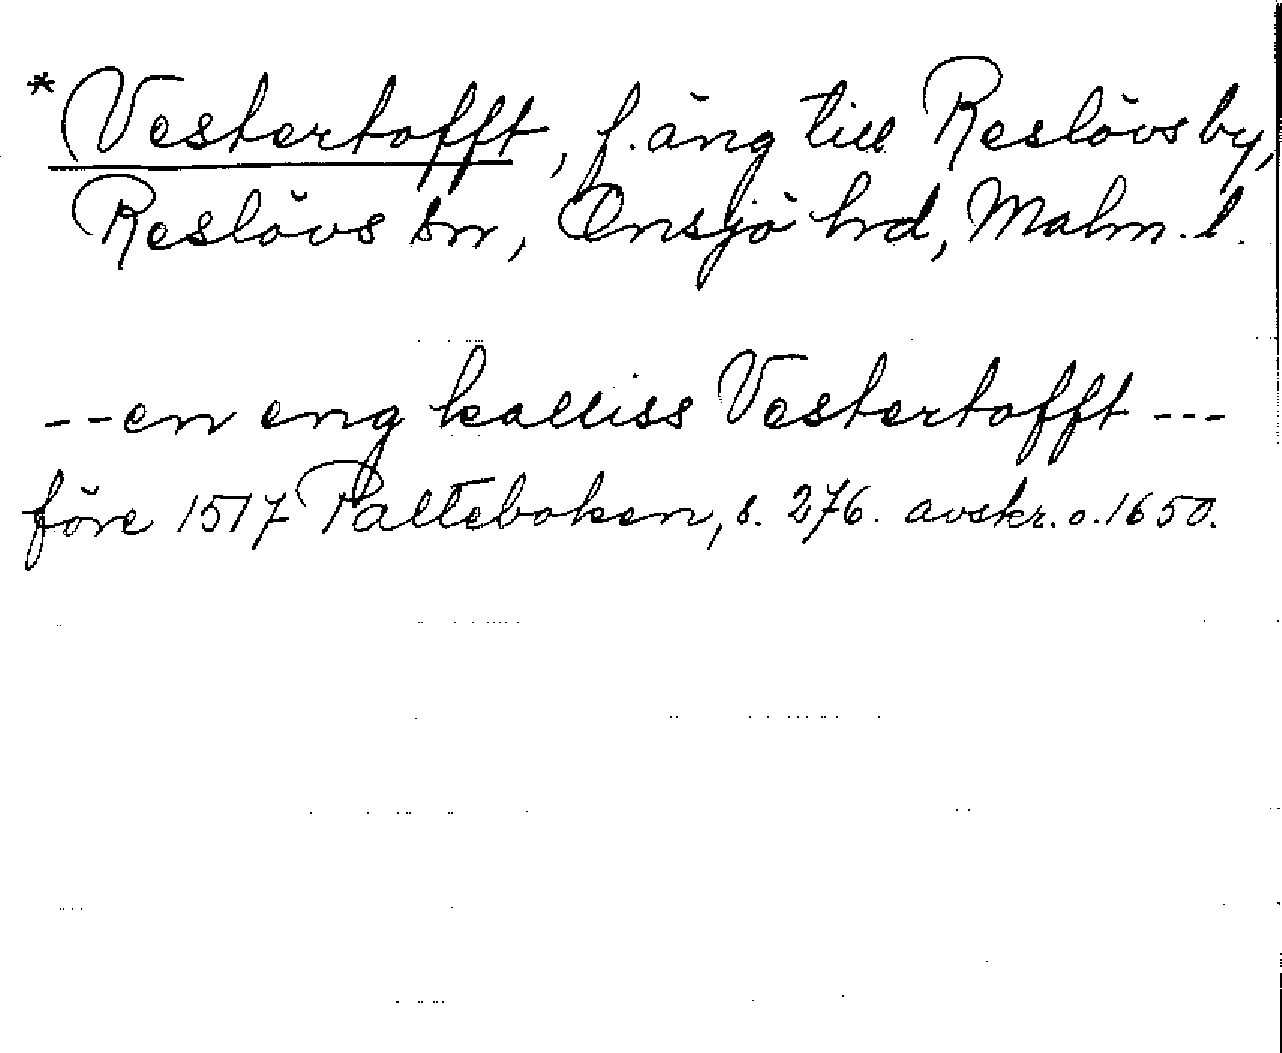 *Vestertofft, f. äng till Reslövs by,
Reslövs sn, Onsjö hd, Malm. l.
--en eng kalliss Vestertofft ---
före 1517 Palteboken, s. 276. avskr. o. 1650.